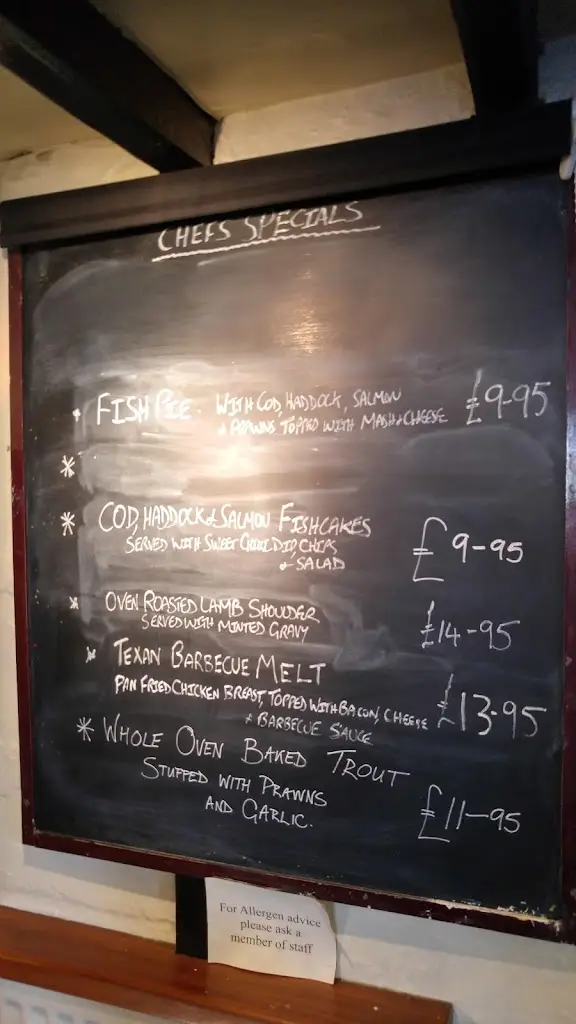 CHEFS SPECIALS
* FISH PIE. WITH COD, HADDOCK, SALMON £9-95
& PRAWNS TOPPED WITH MASH & CHEESE
*
* COD, HADDOCK & SALMON FISHCAKES £9-95
SERVED WITH SWEET CHILLI DIP, CHIPS
& SALAD
* OVEN ROASTED LAMB SHOULDER £14-95
SERVED WITH MINTED GRAVY
* TEXAN BARBECUE MELT £13.95
PAN FRIED CHICKEN BREAST, TOPPED WITH BACON, CHEESE
& BARBECUE SAUCE
* WHOLE OVEN BAKED TROUT £11-95
STUFFED WITH PRAWNS
AND GARLIC.
For Allergen advice
please ask a
member of staff